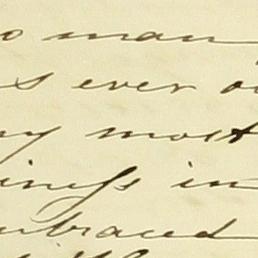 o man
s ever o
ny most
ings in
mbraced